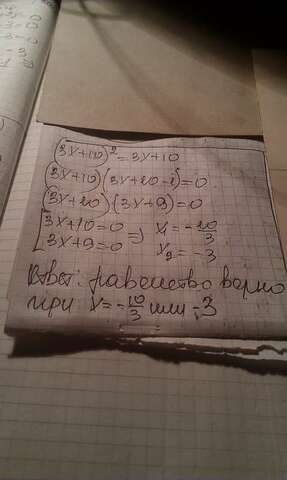 (3x+10)² = 3x+10
(3x+10)(3x+10-1)=0
(3x+10)(3x+9)=0
[3x+10=0 => x₁=-10/3
3x+9=0 x₂=-3
Ответ: равенство верно
при x=-10/3 или -3